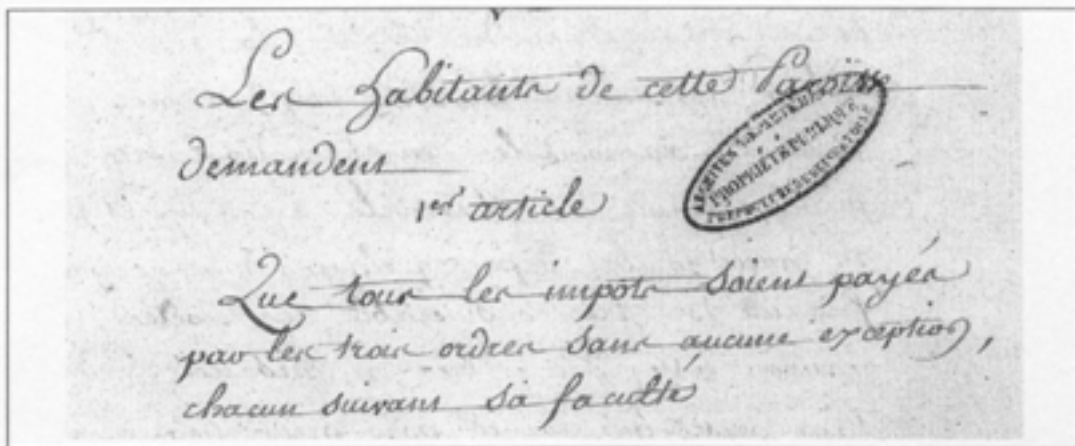 Les habitants de cette Paroisse
demandent
1er article
Que tous les impots soient payés
par les trois ordres sans aucune exception,
chacun suivant sa faculté
ARCHIVES
PROPRIÉTÉ PUBLIQUE